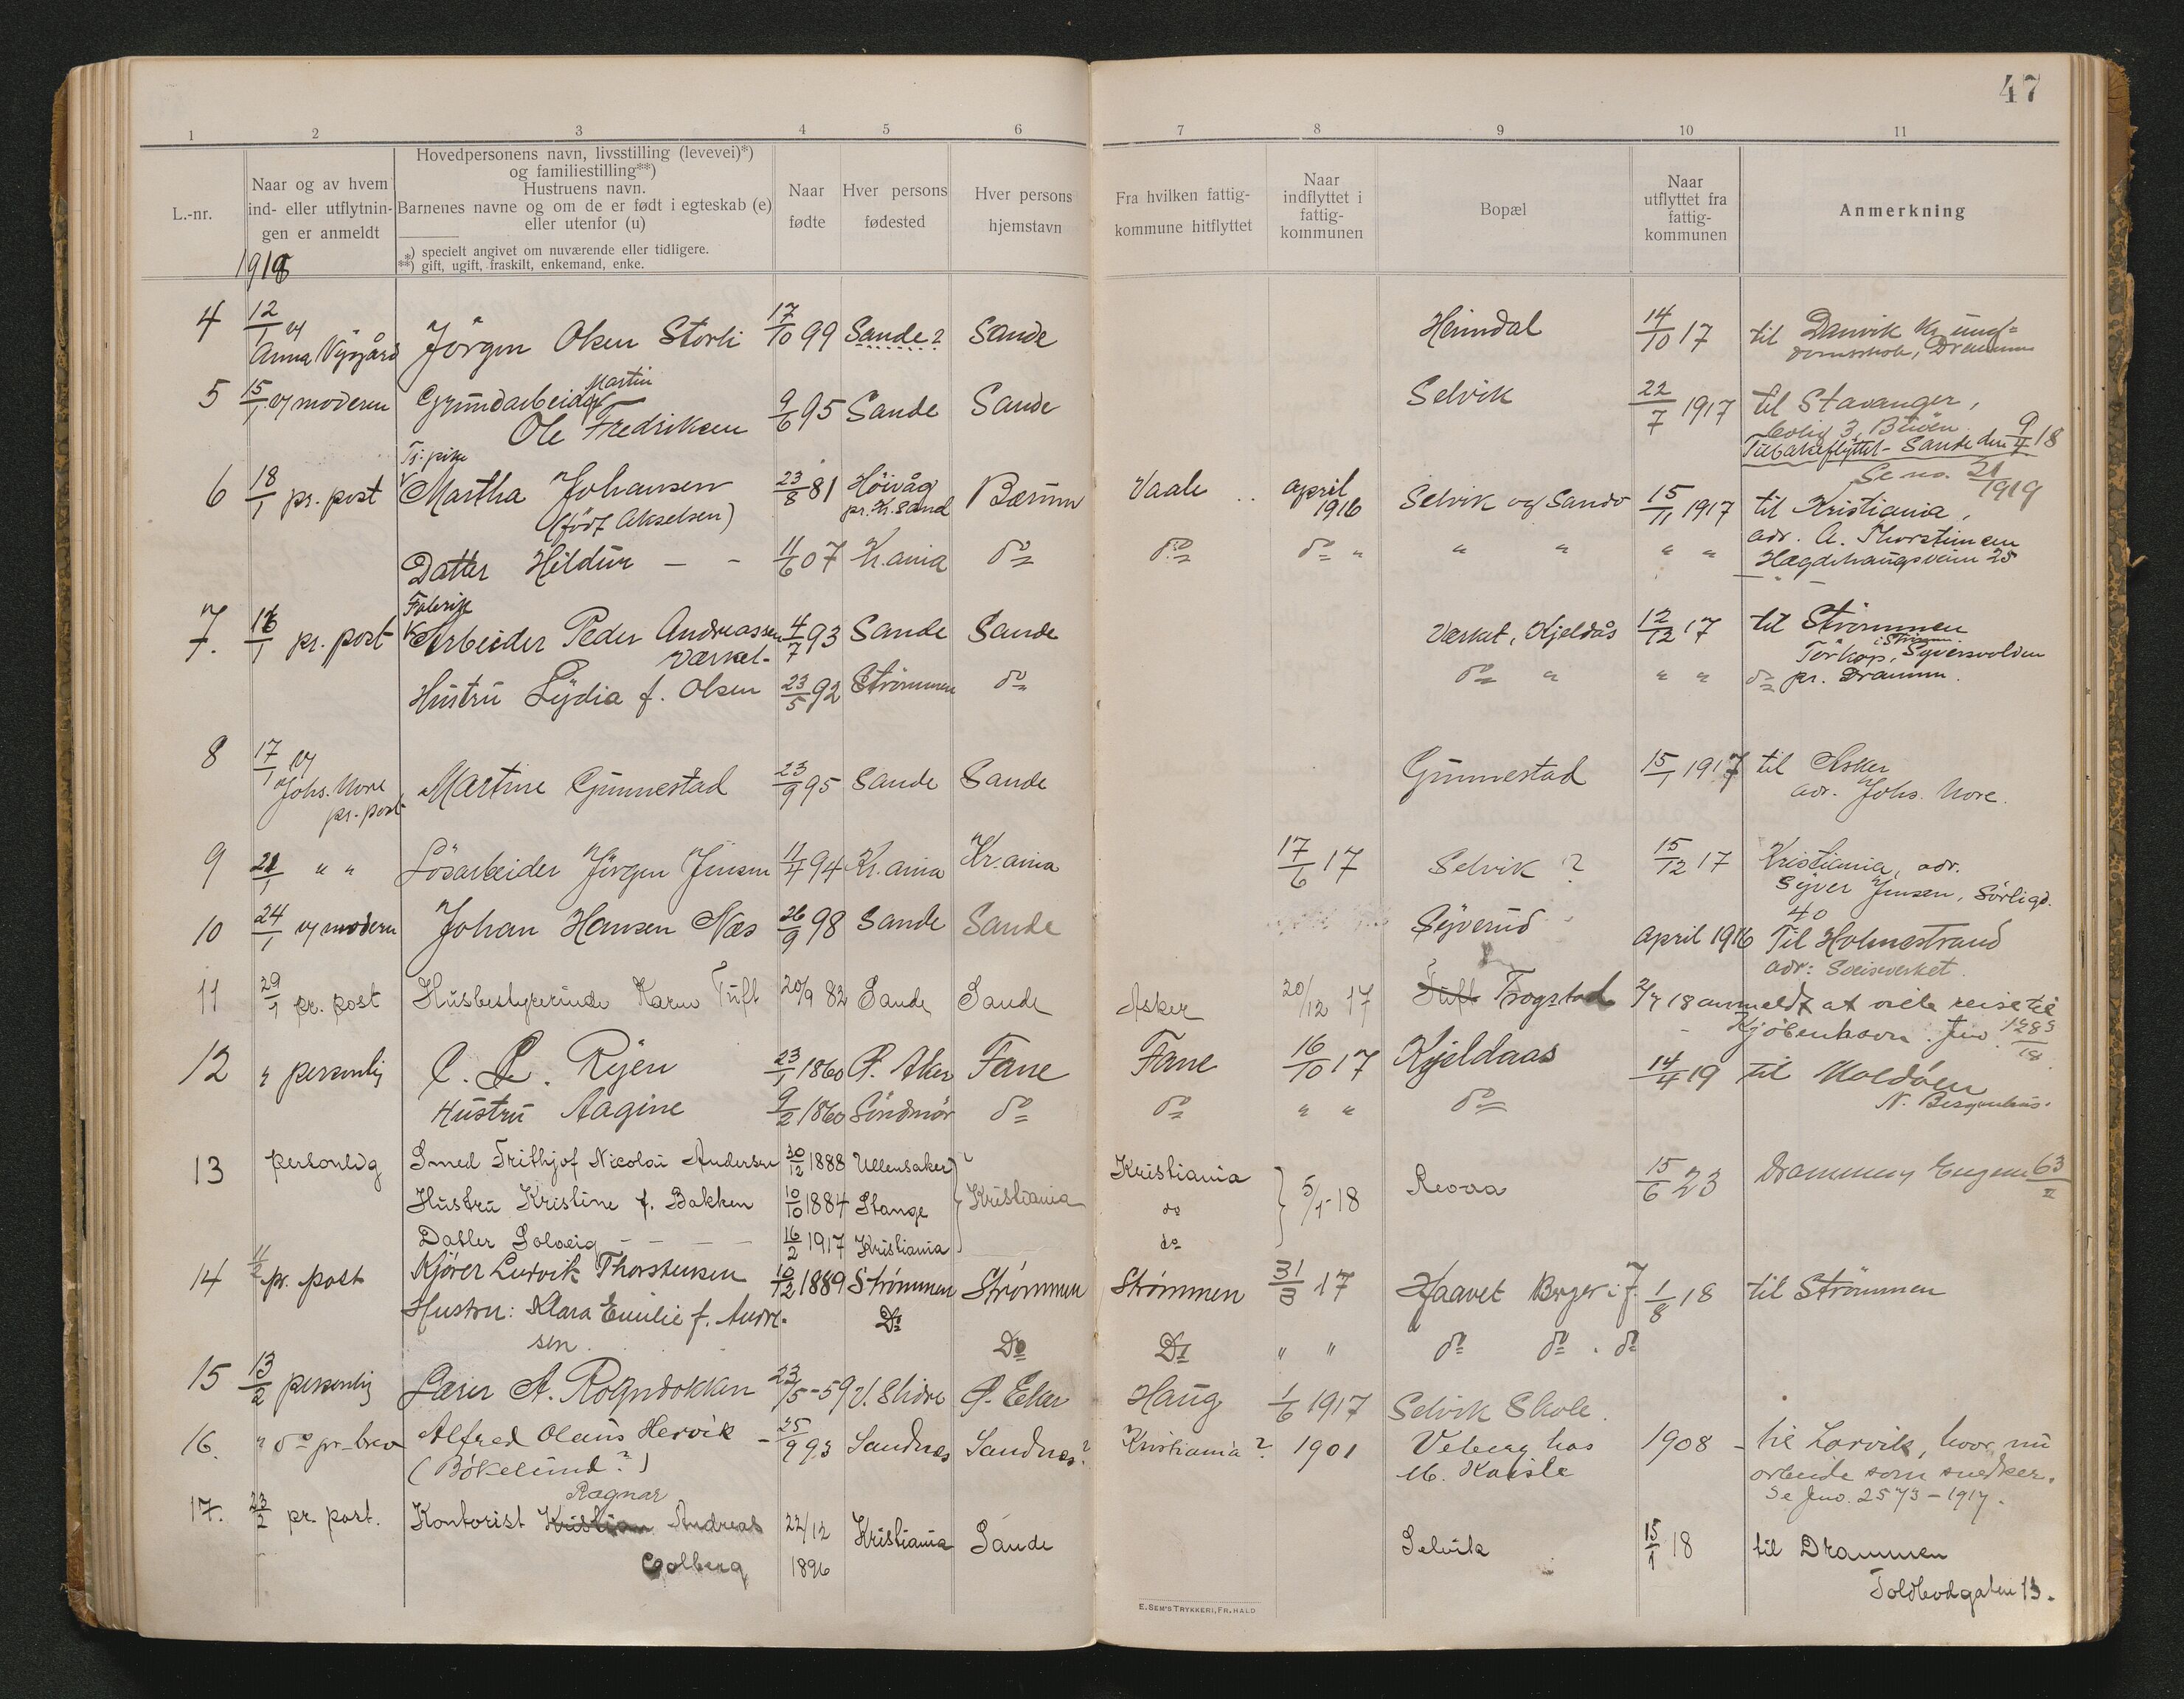 47
1 2 3 4 5 6 7 8 9 10 11
L.-nr.
Naar og av hvem
ind- eller utflytnin-
gen er anmeldt
Hovedpersonens navn, livsstilling (levevei)*)
og familiestilling**)
Hustruens navn.
Barnenes navne og om de er født i egteskab (e)
eller utenfor (u)
*) specielt angivet om nuværende eller tidligere.
**) gift, ugift, fraskilt, enkemand, enke.
Naar
fødte
Hver persons
fødested
Hver persons
hjemstavn
Fra hvilken fattig-
kommune hitflyttet
Naar
indflyttet i
fattig-
kommunen
Bopæl
Naar
utflyttet fra
fattig-
kommunen
Anmerkning
1918
4 12/1 av Jörgen Olsen Storli 17/10 99 Sande? Sande Heimdal 14/10 17 til Danvik Kr. ung=
Anna Nygård domsskole, Drammen
Martin
5 15/1 av moderen Grundarbeider 9/6 95 Sande Sande Selvik 22/7 1917 til Stavanger,
Ole Fredriksen
Tilbakeflyttet Sande den 9/4 18
Tj. pike Se no. 21/1919
6 18/1 pr. post Martha Johansen 23/8 81 Höivåg Bærum Vaale april Selvik og Sande 15/11 1917 til Kristiania,
(född Akselsen) pr. Kr. sand 1916 adr. A. Thorstensen
Datter Hildur — - 11/6 07 Kr.ania do do do " " " " " Hægdehaugsveien 25
Fabrik
7. 16/1 pr. post Arbeider Peder Andreassen 4/7 93 Sande Sande Værket, Kjeldås 12/12 17 til Strömmen
Værket. Törkop, Syversvolden
i Strömm.
Hustru Lydia f. Olsen 23/5 92 Strömmen do do " " " do pr. Drammen.
8 17/1 av Martine Gunnestad 23/9 95 Sande Sande Gunnestad 15/1 1917 til Asker
Johs. Nore adr. Johs. Nore.
pr. post
9 21/1 " " Lösarbeider Jörgen Jensen 11/4 94 Kr.ania Kr.ania 17/6 17 Selvik ? 15/12 17 Kristiania, adr.
Syver Jensen, Sörligt.
40
10 24/1 av modern Johan Hansen Næs 26/9 98 Sande Sande Syverud april 1916 Til Holmestrand
adr: Sveiseverket.
11 29/1 pr. post Husbestyrerinde Karen Tuft 20/9 82 Sande Sande Asker 20/12 17 Tuft Trogstad 2/7 18 anmeldt at ville reise til
Kjöbenhavn. Jno. 1283/18
12 " personlig Ryen 23/1 1860 Ø. Aker Fane Fane 16/10 17 Kjeldaas 14/4 19 til Maldöen
Hustru Aagine 9/2 1860 Söndmör do do " " do N. Bergenhus.
13 personlig Smed Frithjof Nicolai Andersen 30/12 1888 Ullensaker Kristiania Kristiania 5/1-18 Revaa 15/6 23 Drammen, Engene 63/II
Hustru Kristine f. Bakken 10/10 1884 Stange do
Datter Solveig — — — 16/2 1917 Kristiania do
14 11/2 pr. post Kjörer Ludvik Thorstensen 10/12 1889 Strömmen Strömmen Strömmen 31/3 17 Haavet Berger i J. 1/8 18 til Strömmen
Hustru: Klara Emilie f. Andre- Do
sen. Do Do " " do do . do
15 13/2 personlig Lærer A. Rogndokken 23/5-59 V. Slidre Ø. Eker Haug 1/6 1917 Selvik Skole.
16. " do pr. brev Alfred Olaus Hervik - 25/9 93 Sandnes Sandnes? Kristiania? 1901 Veberg hos 1908 - til Larvik, hvor nu
(Bökelund?) M. Kaisle arbeide som snedker.
Se Jno. 2573-1917.
Ragnar
17. 23/2 pr. post. Kontorist Kristian Andreas 22/12 Kristiania Sande Selvik 15/1 18 til Drammen
Golberg 1896 Toldbodgaten 13.
E. SEM'S TRYKKERI, FR.HALD